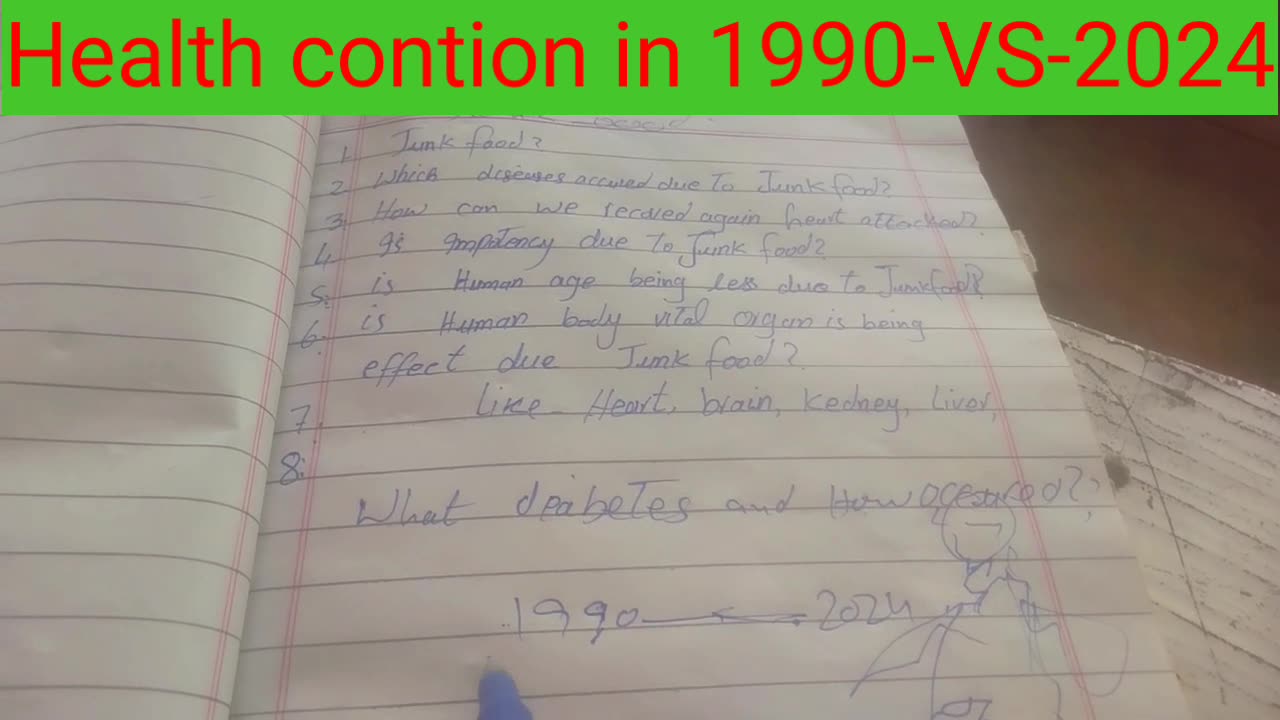 Health contion in 1990-VS-2024
1. Junk food?
2. Which diseases accured due To Junk food?
3. How can we recoved again heart attacked?
4. Is Impotency due To Junk food?
5. is Human age being less due to Junkfood?
6. is Human body vital organ is being
effect due Junk food?
7. Like- Heart, brain, kedney, Liver,
8:
What deabetes and How
1990 2024